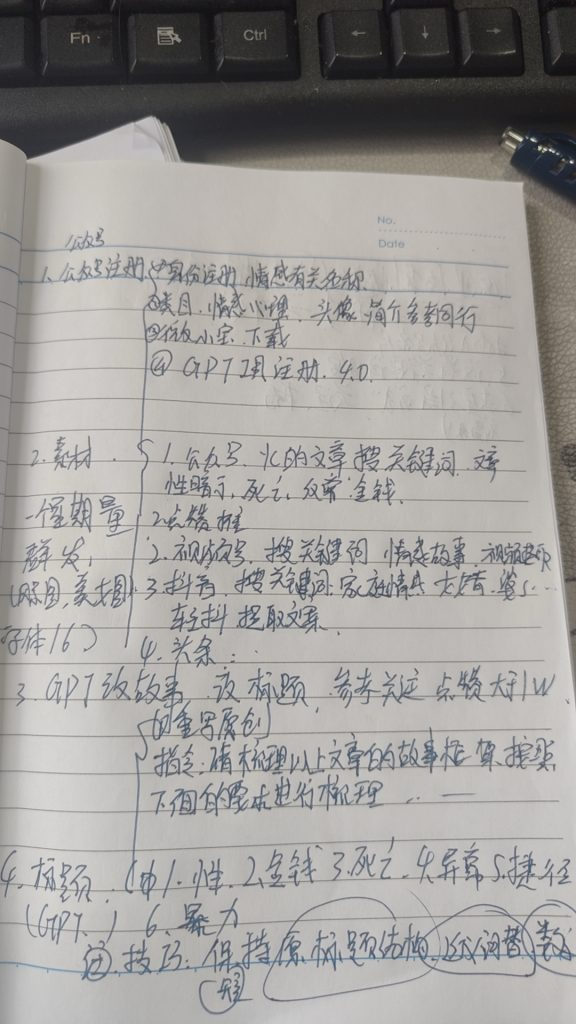 Fn
Ctrl
← ↓ →
No.
Date
公众号
1. 公众号注册 ①身份注册 情感有关名称
②类目, 情感心理, 头像 简介参考同行
下载
④ GPT 注册. 4.0
2. 素材
1. 公众号, 的文章 搜关键词
性暗示, 死亡, 金钱.
一个星期量
2. 点赞
群发,
2. 视频号, 搜关键词 情感故事
3. 抖音, 搜关键词
字体16)
轻抖 提取文案
4. 头条
3. GPT改故事 改标题, 参考关注 点赞大于1W
的重写原创
指令: 请梳理以上文章的故事框架, 按照
下面的要求进行梳理 ... —
4. 标题 1. 性. 2. 金钱 3. 死亡. 4. 异常 5. 捷径
(GPT.) 6. 暴力
技巧: 保持原标题结构, 词替